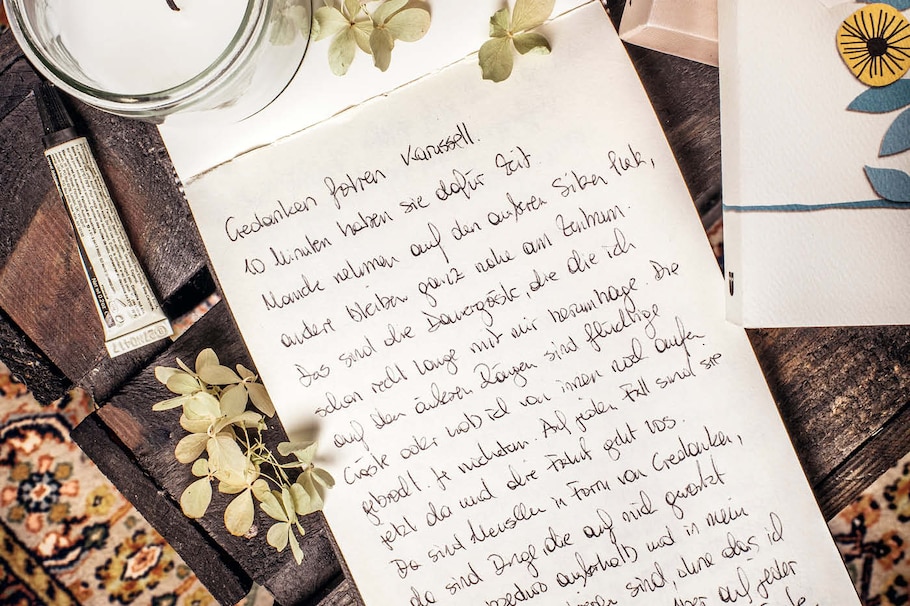 Gedanken fahren Karussell.
10 Minuten haben sie dafür Zeit.
Manche nehmen auf den äußeren Sitzen Platz,
andere bleiben ganz nahe am Zentrum.
Das sind die Dauergäste, die die ich
schon recht lange mit mir herumtrage. Die
auf den äußeren Rängen sind flüchtige
Gäste oder wob ich von innen nach außen
gebracht. Je nachdem. Auf jeden Fall sind sie
jetzt da und die Fahrt geht los.
Da sind Menschen in Form von Gedanken,
da sind Dinge die auf mich gewirkt
außerhalb und in mein
sind, ohne das ich
auf jeder